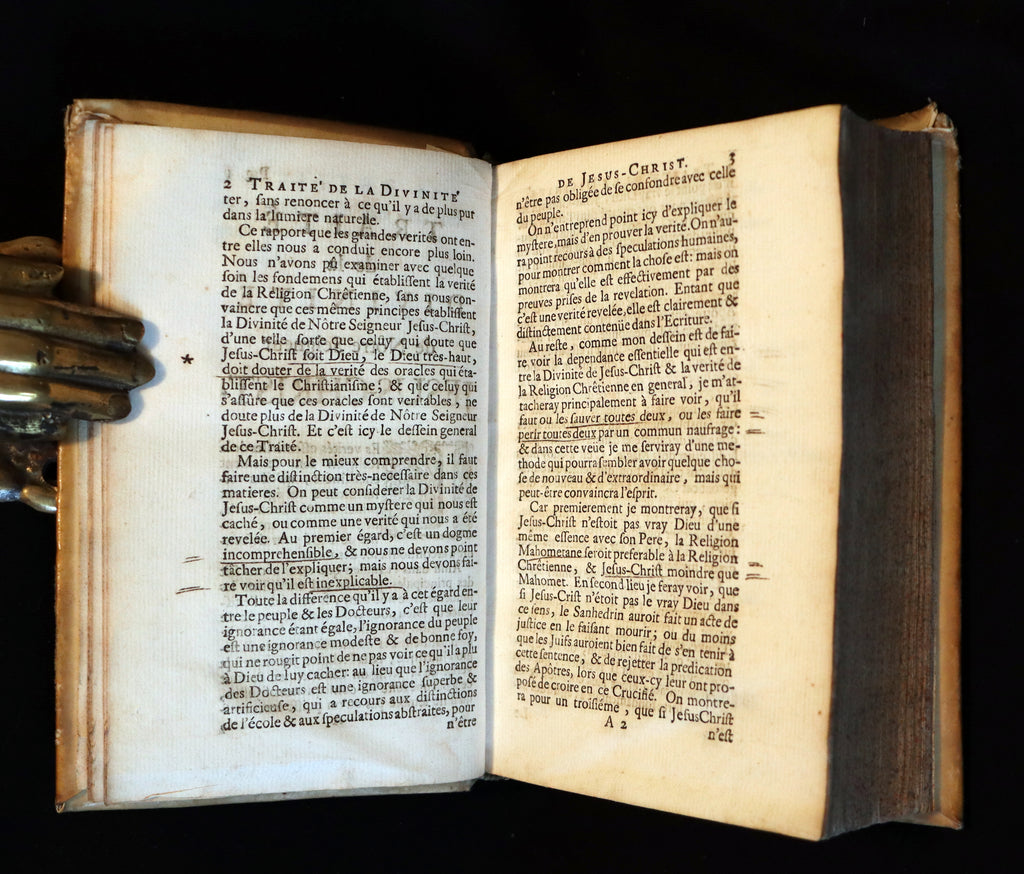 2 TRAITÉ DE LA DIVINITÉ
ter, ſans renoncer à ce qu'il y a de plus pur
dans la lumiere naturelle.
Ce rapport que les grandes verités ont en-
tre elles nous a conduit encore plus loin.
Nous n'avons pû examiner avec quelque
ſoin les fondemens qui établiſſent la verité
de la Réligion Chrêtienne, ſans nous con-
vaincre que ces mêmes principes établiſſent
la Divinité de Nôtre Seigneur Jeſus-Chriſt,
d'une telle ſorte que celuy qui doute que
* Jeſus-Chriſt ſoit Dieu, le Dieu très-haut,
doit douter de la verité des oracles qui éta-
bliſſent le Chriſtianiſme; & que celuy qui
s'aſſûre que ces oracles ſont veritables, ne
doute plus de la Divinité de Nôtre Seigneur
Jeſus-Chriſt. Et c'eſt icy le deſſein general
de ce Traité.
Mais pour le mieux comprendre, il faut
faire une diſtinction très-neceſſaire dans ces
matieres. On peut conſiderer la Divinité de
Jeſus-Chriſt comme un myſtere qui nous eſt
caché, ou comme une verité qui nous a été
revelée. Au premier égard, c'eſt un dogme
incomprehenſible, & nous ne devons point
tâcher de l'expliquer; mais nous devons fai-
re voir qu'il eſt inexplicable.
Toute la difference qu'il y a à cet égard en-
tre le peuple & les Docteurs, c'eſt que leur
ignorance étant égale, l'ignorance du peuple
eſt une ignorance modeſte & de bonne foy,
qui ne rougit point de ne pas voir ce qu'il a plu
à Dieu de luy cacher: au lieu que l'ignorance
des Docteurs eſt une ignorance ſuperbe &
artificieuſe, qui a recours aux diſtinctions
de l'école & aux ſpeculations abſtraites, pour
n'être
DE JESUS-CHRIST. 3
n'être pas obligée de ſe confondre avec celle
du peuple.
On n'entreprend point icy d'expliquer le
myſtere, mais d'en prouver la verité. On n'au-
ra point recours à des ſpeculations humaines,
pour montrer comment la choſe eſt: mais on
montrera qu'elle eſt effectivement par des
preuves priſes de la revelation. Entant que
c'eſt une verité revelée, elle eſt clairement &
diſtinctement contenüe dans l'Ecriture.
Au reſte, comme mon deſſein eſt de fai-
re voir la dependance eſſentielle qui eſt en-
tre la Divinité de Jeſus-Chriſt & la verité de
la Religion Chrêtienne en general, je m'at-
tacheray principalement à faire voir, qu'il
faut ou les ſauver toutes deux, ou les faire
perir toutes deux par un commun naufrage:
& dans cette veüe je me ſerviray d'une me-
thode qui pourra ſembler avoir quelque cho-
ſe de nouveau & d'extraordinaire, mais qui
peut-être convaincra l'eſprit.
Car premierement je montreray, que ſi
Jeſus-Chriſt n'eſtoit pas vray Dieu d'une
même eſſence avec ſon Pere, la Religion
Mahometane ſeroit preferable à la Religion
Chrêtienne, & Jeſus-Chriſt moindre que
Mahomet. En ſecond lieu je feray voir, que
ſi Jeſus-Criſt n'étoit pas le vray Dieu dans
ce ſens, le Sanhedrin auroit fait un acte de
juſtice en le faiſant mourir; ou du moins
que les Juifs auroient bien fait de s'en tenir à
cette ſentence, & de rejetter la predication
des Apôtres, lors que ceux-cy leur ont pro-
poſé de croire en ce Crucifié. On montre-
ra pour un troiſiéme, que ſi Jeſus Chriſt
A 2
n'eſt